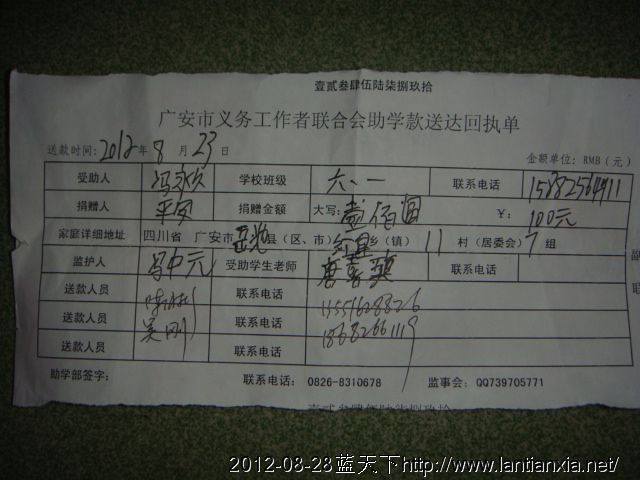 壹贰叁肆伍陆柒捌玖拾
广安市义务工作者联合会助学款送达回执单
送款时间: 2012 年 8 月 23 日 金额单位: RMB (元)
受助人 冯永久 学校班级 六、一 联系电话
捐赠人 平安 捐赠金额 大写: 壹佰圆 ¥: 100元
家庭详细地址 四川省 广安市 岳池 县(区、市) 乡(镇) 11 村(居委会) 7 组
监护人 冯中元 受助学生老师 联系电话
送款人员 联系电话 13551628826
送款人员 吴刚 联系电话 18682661119
送款人员 联系电话
助学部签字: 联系电话: 0826-8310678 监事会: QQ739705771
壹贰叁肆伍陆柒捌玖拾
2012-08-28蓝天下http://www.lantianxia.net/